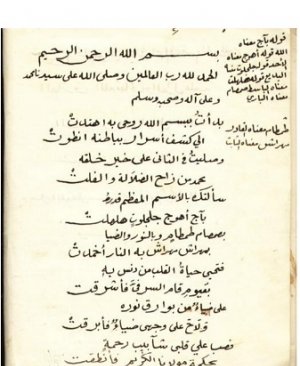 بسم الله الرحمن الرحيم
الحمد لله رب العالمين وصلى الله على سيدنا محمد
وعلى آله وصحبه وسلم
بدأت ببسم الله روحي به اهتدت
الى كشف أسرار بباطنه انطوت
وصليت في الثاني على خير خلقه
محمد من زاح الضلالة والغلت
سألتك بالاسم المعظم قدره
بآج أهوج جلجلوت هلهلت
بصمصام طمطام وبالنور والضيا
بمهراش مهراش به النار أخمدت
فتحيى حياة القلب من دنس به
بقيوم قام السر فيه فأشرقت
على ضياء من بوارق نوره
ولاح على وجهي ضياء فأبرقت
فصب على قلبي شآبيب رحمة
بحكمة مولانا الكريم فأنطقت
قوله بآج معناه
الله قوله أهوج معناه